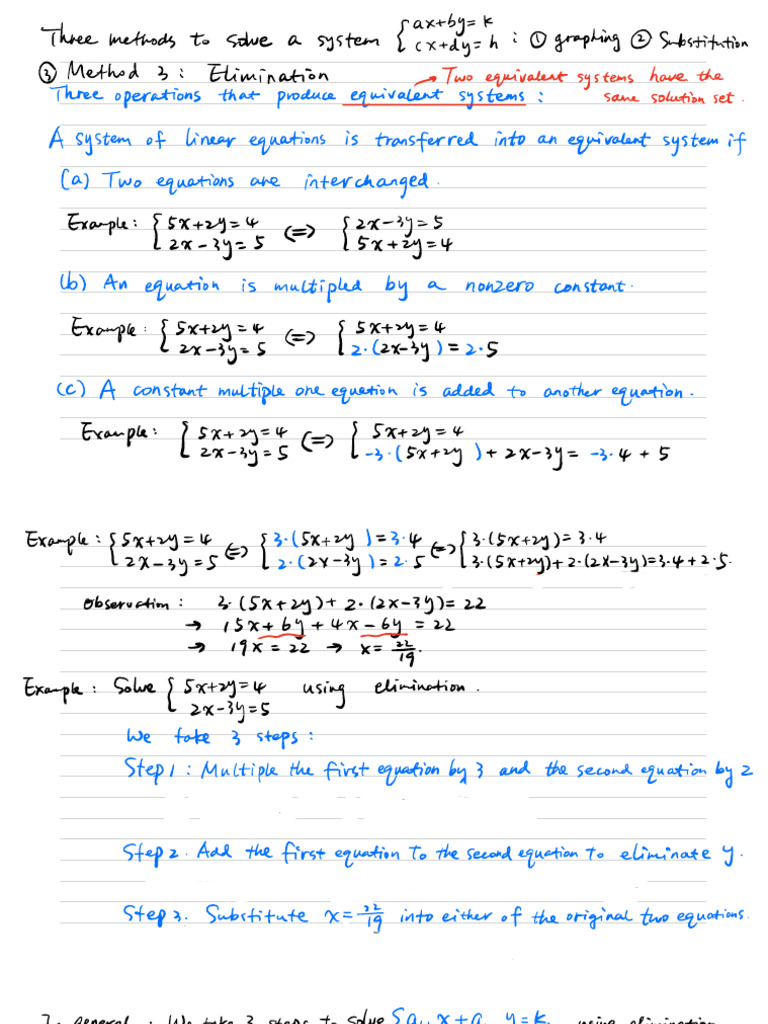 Three methods to solve a system { ax+by=k : ① graphing ② Substitution
cx+dy=h
③ Method 3: Elimination → Two equivalent systems have the
Three operations that produce equivalent systems: same solution set.
A system of linear equations is transferred into an equivalent system if
(a) Two equations are interchanged.
Example: { 5x+2y=4 <=> { 2x-3y=5
2x-3y=5 5x+2y=4
(b) An equation is multipled by a nonzero constant.
Example: { 5x+2y=4 <=> { 5x+2y=4
2x-3y=5 2·(2x-3y)=2·5
(c) A constant multiple one equation is added to another equation.
Example: { 5x+2y=4 <=> { 5x+2y=4
2x-3y=5 -3·(5x+2y)+2x-3y=-3·4+5
Example: { 5x+2y=4 <=> { 3·(5x+2y)=3·4 <=> { 3·(5x+2y)=3·4
2x-3y=5 2·(2x-3y)=2·5 3·(5x+2y)+2·(2x-3y)=3·4+2·5.
Observation: 3·(5x+2y)+2·(2x-3y)=22
→ 15x+6y+4x-6y=22
→ 19x=22 → x=22/19.
Example: Solve { 5x+2y=4 using elimination.
2x-3y=5
We take 3 steps:
Step 1: Multiple the first equation by 3 and the second equation by 2
Step 2. Add the first equation to the second equation to eliminate y.
Step 3. Substitute x=22/19 into either of the original two equations.
In general: We take 3 steps to solve { a₁₁x+a₁₂y=k₁ using elimination